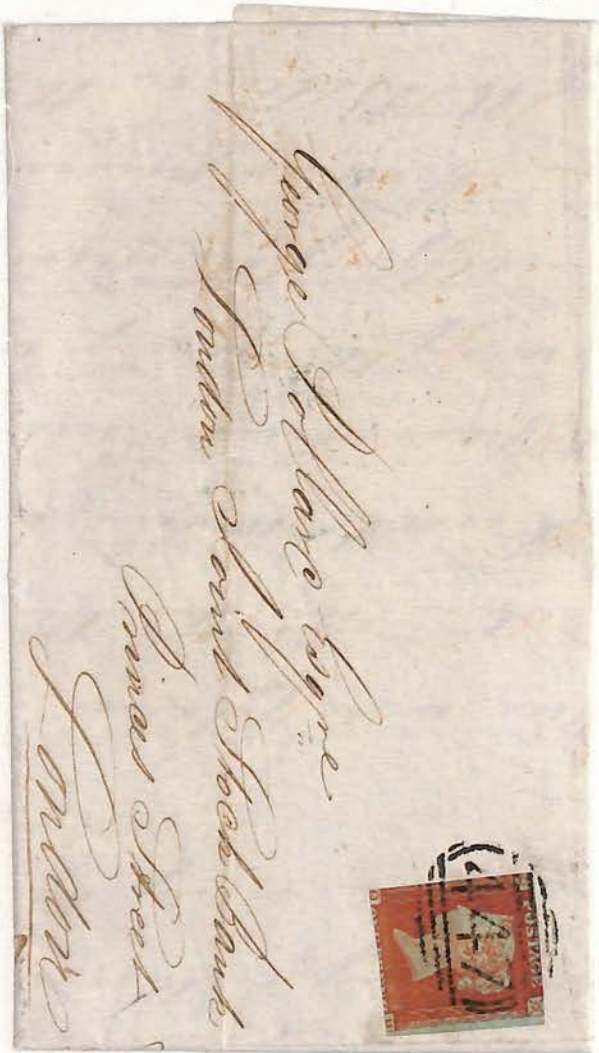 George Pollard Esqre
London Joint Stock Bank
Princes Street
London
POSTAGE